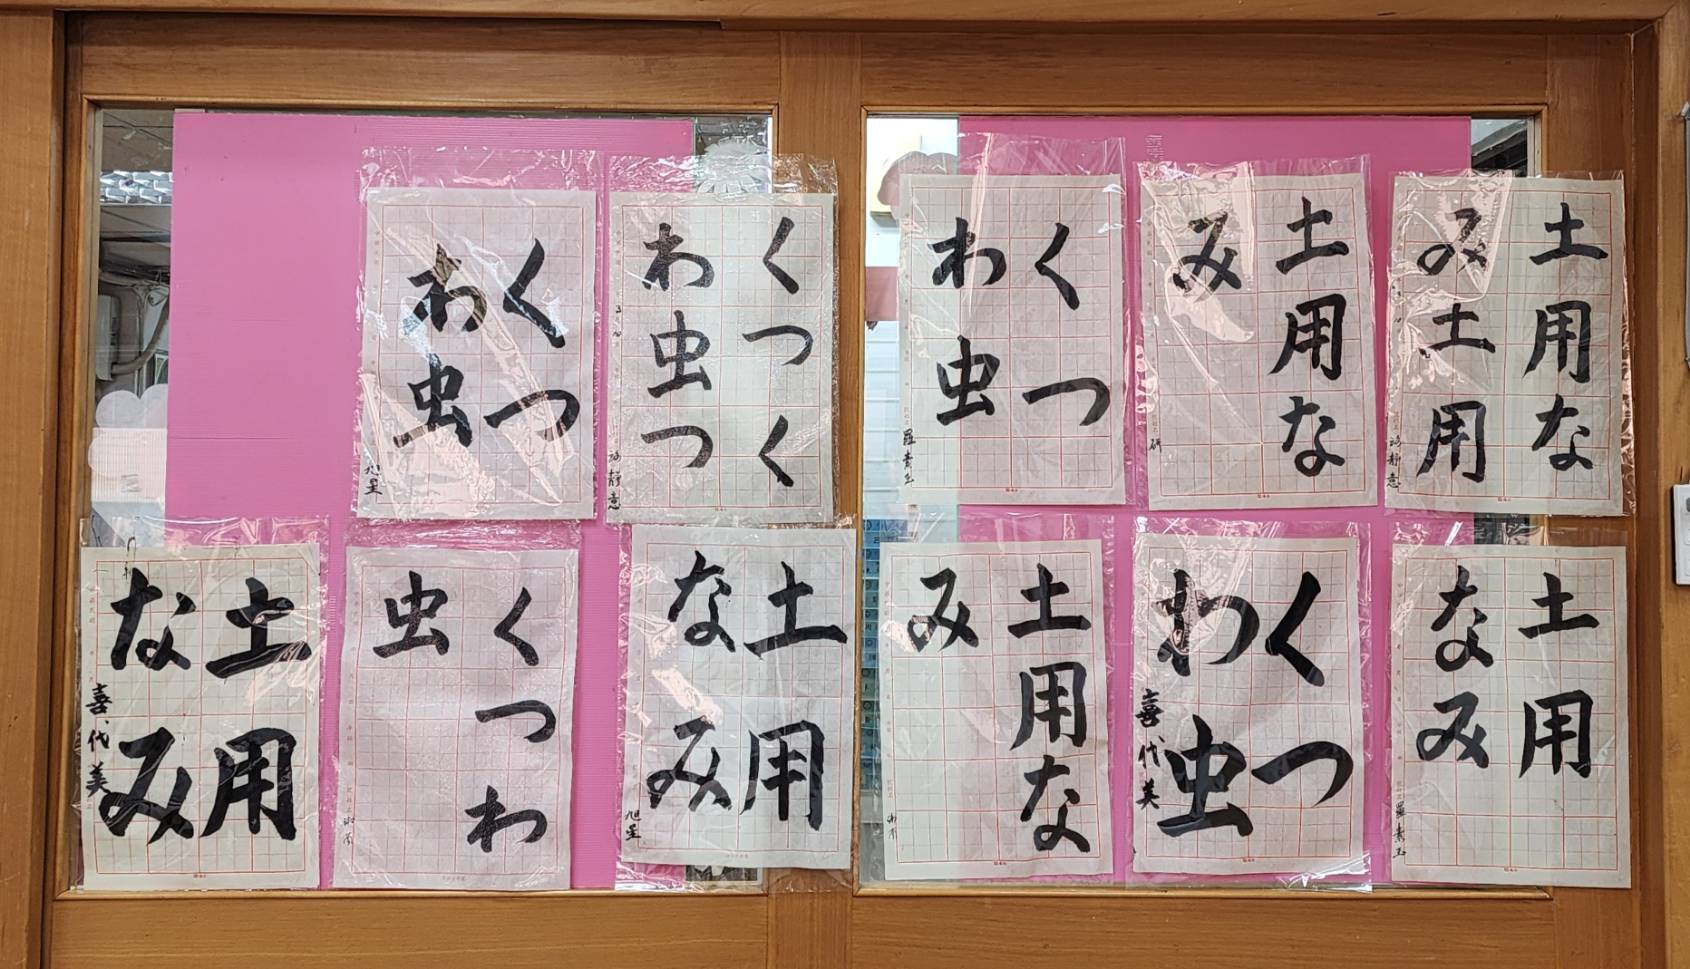 くつ
わ虫
旭星
くつく
わ虫つ
静意
くつ
わ虫
羅素玉
土用な
み
研
土用な
み土用
静意
土用
なみ
喜代美
くつわ
虫
土用
なみ
旭星
土用な
み
くつ
わ虫
喜代美
土用
なみ
羅素玉